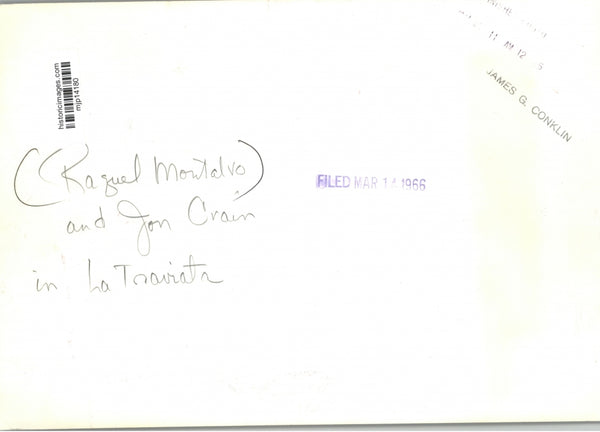 historicimages.com
mjp14180
11 AM 12
JAMES G. CONKLIN
(Raquel Montalvo)
and Jon Crain
in La Traviata
FILED MAR 14 1966